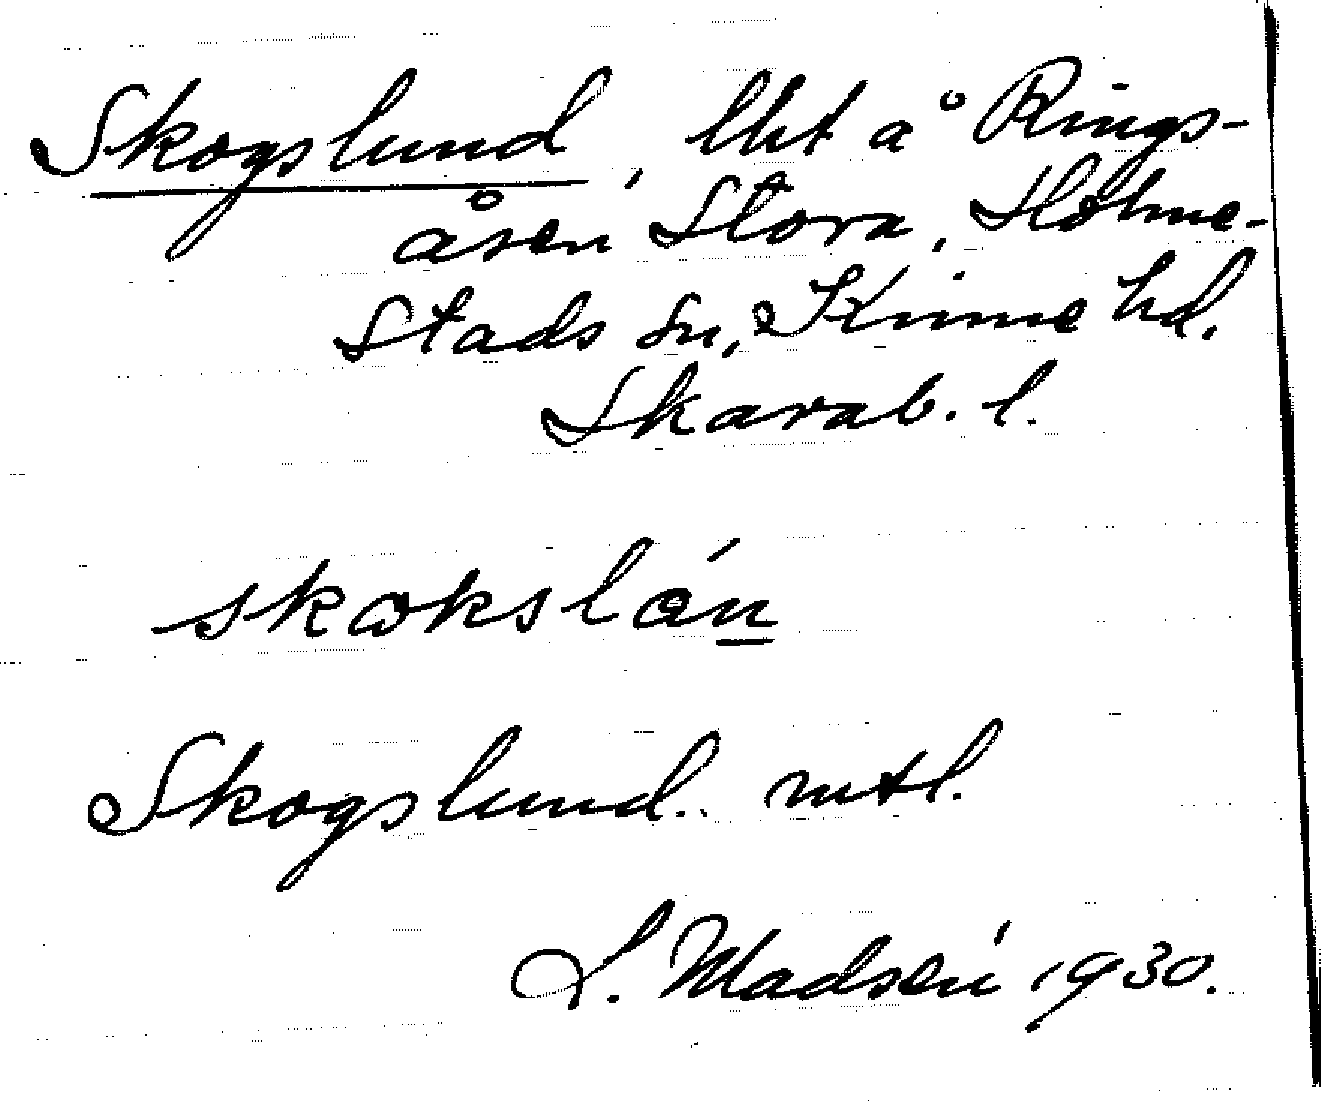 Skogslund, lht å Rings-
åsen Stora, Holme-
stads sn, Kinne hd.
Skarab. l.
skɷkslán
Skogslund. mtl.
L. Madsén 1930.